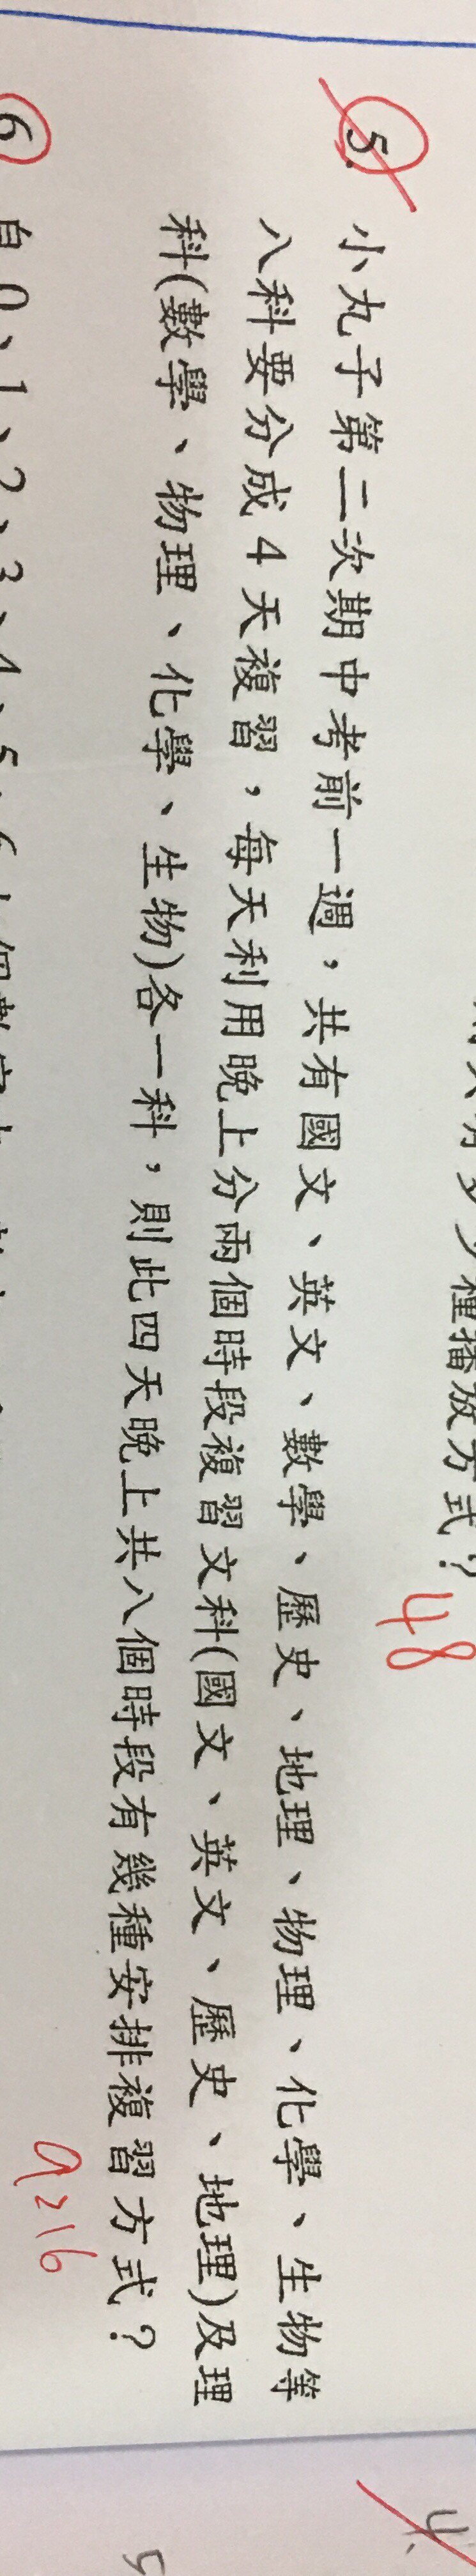 有多少種播放方式？ 48
5. 小丸子第二次期中考前一週，共有國文、英文、數學、歷史、地理、物理、化學、生物等
八科要分成4天複習，每天利用晚上分兩個時段複習文科(國文、英文、歷史、地理)及理
科(數學、物理、化學、生物)各一科，則此四天晚上共八個時段有幾種安排複習方式？
9216
6 自0、1、2、3、4、5、6
4.
5